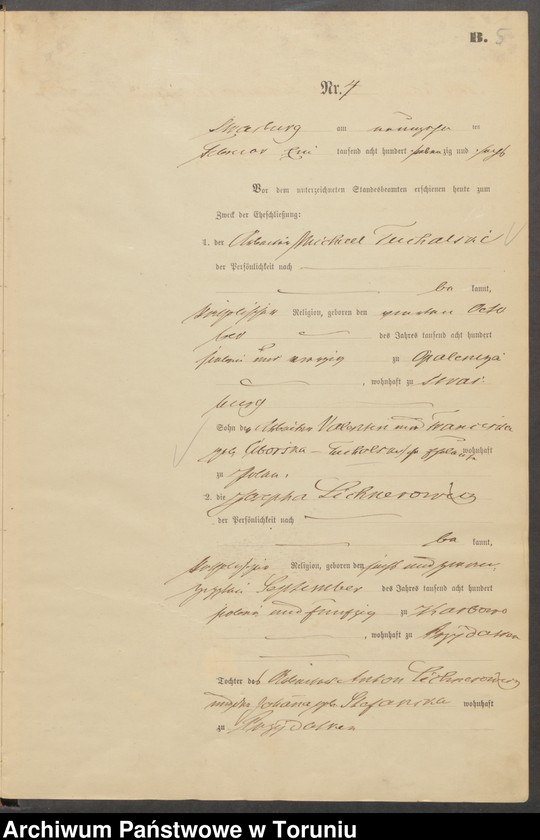 B. 5
Nr. 4
Strasburg am neunzehn ten
Februar Ein tausend acht hundert sieben zig und sechs
Vor dem unterzeichneten Standesbeamten erschienen heute zum
Zweck der Eheschließung:
1. der Arbeiter Michael Tucholski
der Persönlichkeit nach
be kannt,
katholischer Religion, geboren den Octo
ber des Jahres tausend acht hundert
sieben und zu
, wohnhaft zu Stras
burg
Sohn des Arbeiter Valentin und Franciska
geb. Tucholski wohnhaft
zu Polen.
2. die Josepha Lichnerowicz
der Persönlichkeit nach
be kannt,
katholischer Religion, geboren den fünf und zwan
zigsten September des Jahres tausend acht hundert
sieben und funfzig zu Karbowo
, wohnhaft zu
Tochter des Anton Lichnerowicz
und der Johanna geb. Stefanska wohnhaft
zu
Archiwum Państwowe w Toruniu